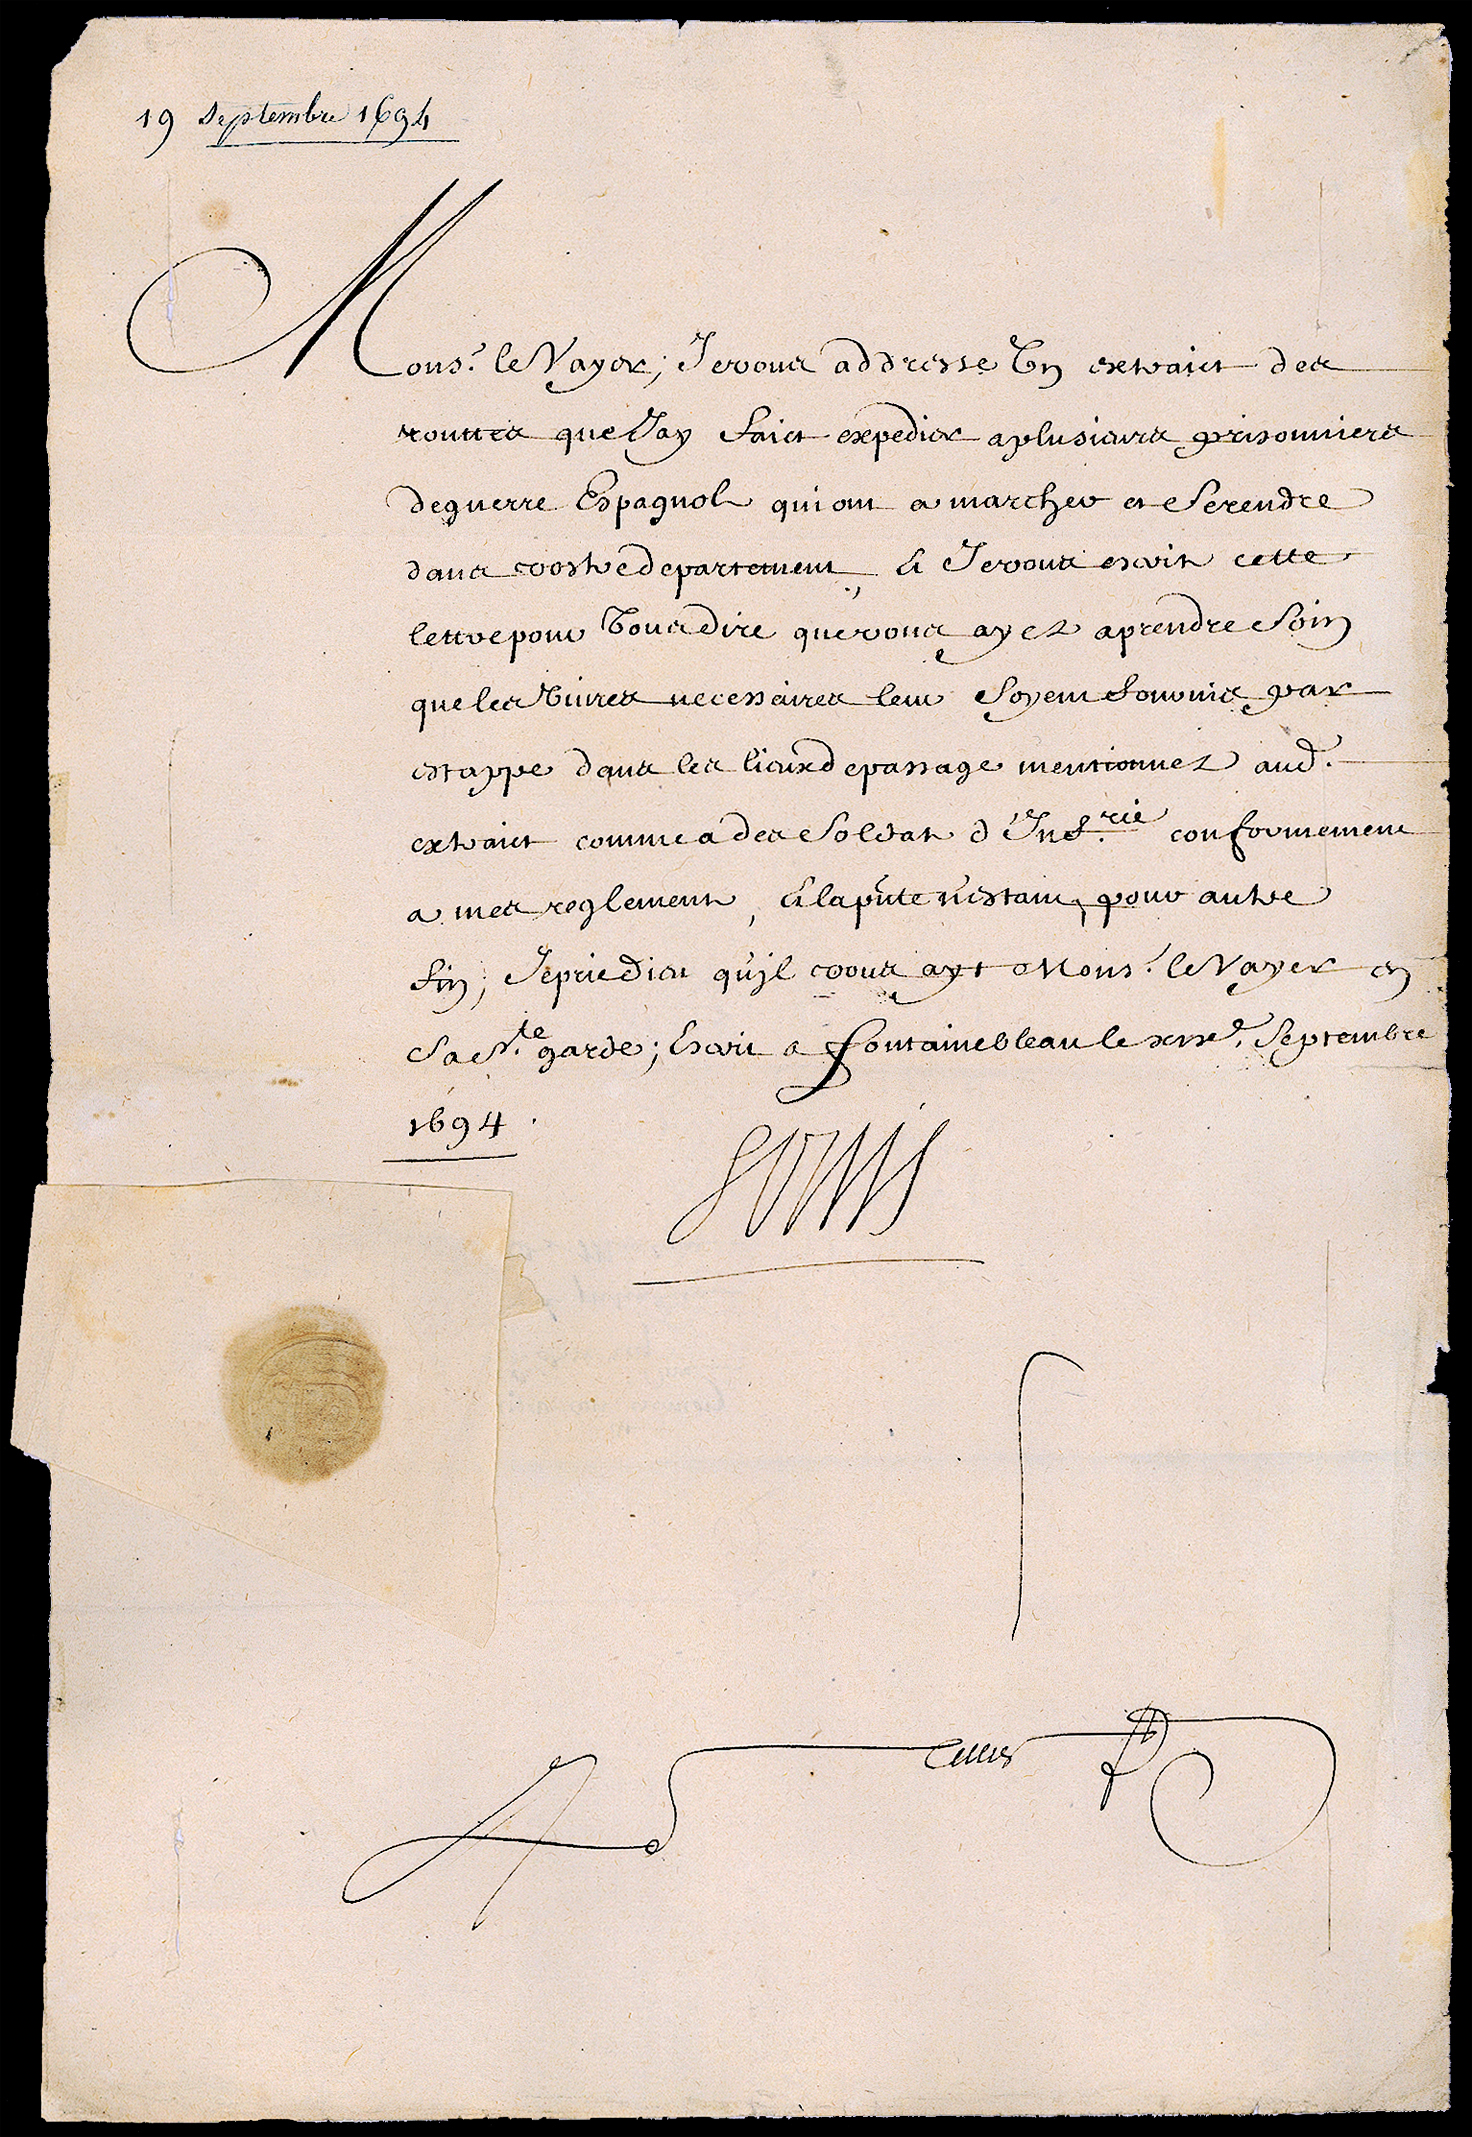 19 Septembre 1694
Mons.^r le Vayer; Je vous addresse Un extraict des
routtes que J'ay faict expedier a plusieurs prisonniers
de guerre Espagnols qui ont a marcher et Se rendre
dans vostre departement, Et Je vous escrits cette
lettre pour Vous dire que vous ayez a prendre Soin
que les Vivres necessaires leur Soyent fournis par
estappe dans les lieux de passage mentionnez aud.
extraict comme a des Soldats d'Inf.^rie conformement
a mes reglements, Et la pñte n'estant, pour autre
fin, Je prie dieu qu'jl vous ayt Mons.^r le Vayer en
Sa S.^te garde; Escrit a fontainebleau le xix^e. Septembre
1694.
Louis